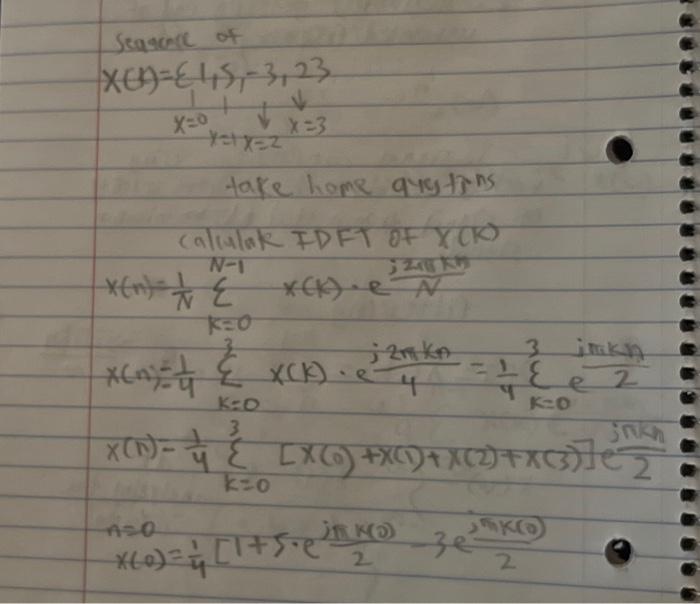 sequence of
X(k)={1,5,-3,2}
x=0 x=1 x=2 x=3
take home questions
calculate IDFT of X(K)
x(n)=1/N Σ_{k=0}^{N-1} x(k)·e^{j2πkn/N}
x(n)=1/4 Σ_{k=0}^{3} x(k)·e^{j2πkn/4} = 1/4 Σ_{k=0}^{3} e^{jπkn/2}
x(n)=1/4 Σ_{k=0}^{3} [x(0)+x(1)+x(2)+x(3)]e^{jπkn/2}
n=0
x(0)=1/4 [1+5·e^{jπk(0)/2} -3e^{jπk(0)/2}